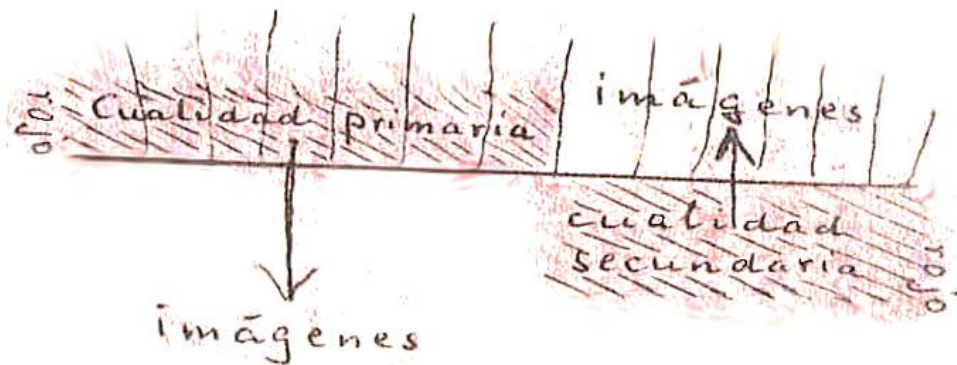 rojo
Cualidad primaria
imágenes
cualidad
secundaria
rojo
imágenes